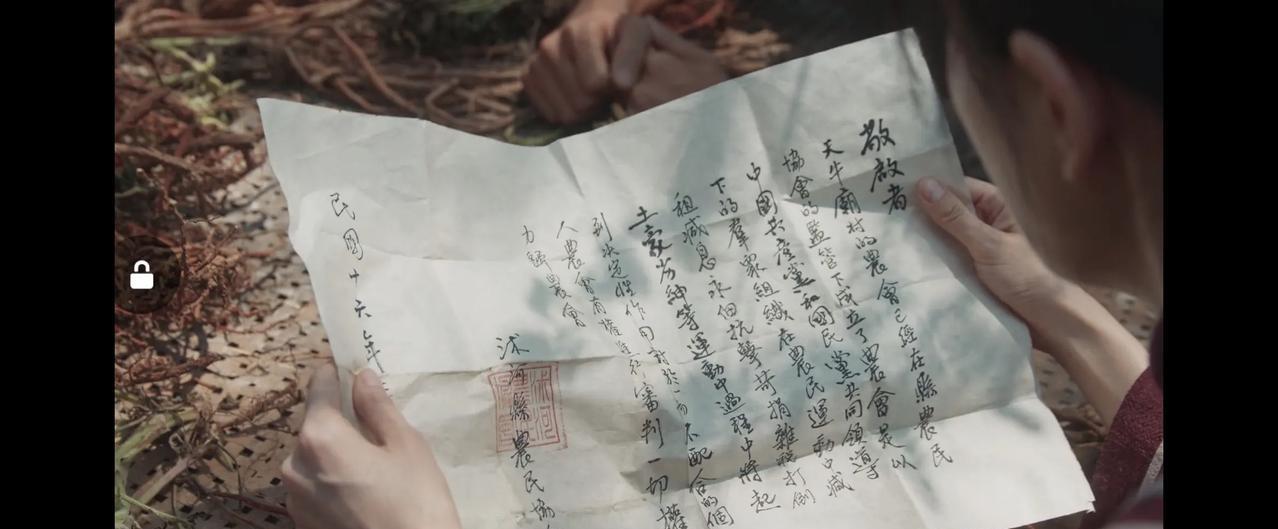 敬啟者
天牛廟村的農會已經在縣農民
協會的監管下成立了農會是以
中國共産黨和國民黨共同領導
下的羣眾組織在農民運動中減
租減息永佃抗擊苛捐雜稅打倒
土豪劣紳等運動中過程中將起
到決定性作用對於不配合的個
人農會有權進行審判一切權
力歸農會
沭河縣農民協
民國十六年